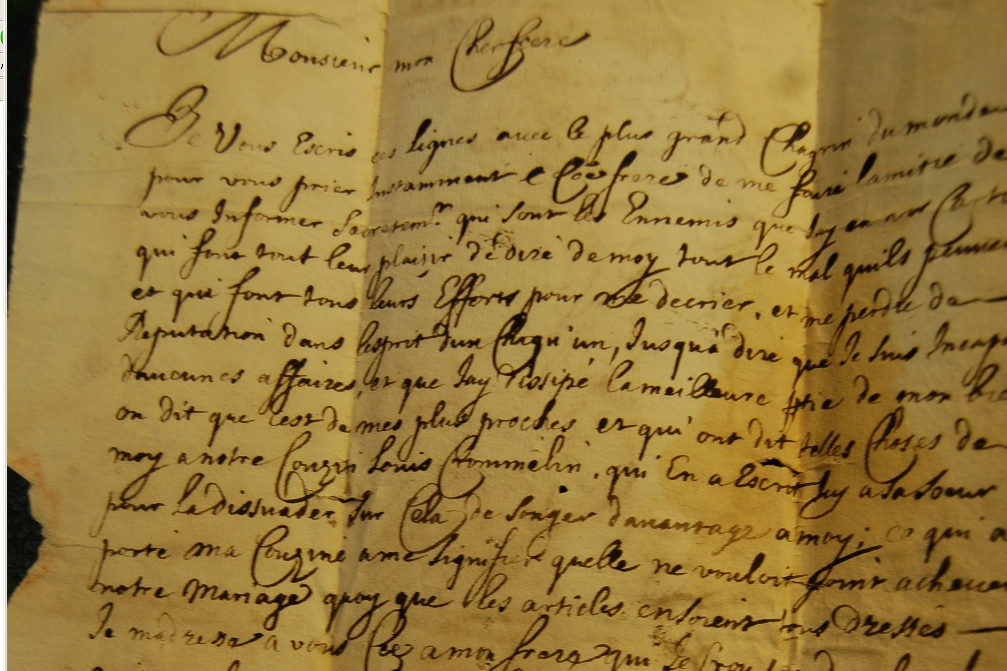 Monsieur mon Cher frere
Je Vous Escris ces lignes avec le plus grand Chagrin du monde
pour vous prier Instamment & Cher frere de me faire lamitie de
vous Informer Secretemt qui sont les Ennemis que Jay en
qui font tout leur plaisir de dire de moy tout le mal quils peuve
et qui font tous leurs Efforts pour me decrier, et me perdre de
Reputation dans lesprit dun Chaqu'un, Jusqu'a dire que Je suis Incap
daucunes affaires, et que Jay Dissipé la meilleure ptie de mon bie
on dit que cest de mes plus proches et qui ont dit telles Choses de
moy a notre Couzin Louis Crommelin, qui En a Escrit Jcy a sa soeur
pour La dissuader sur Cela de songer davantage a moy; ce qui a
porté ma Couzine a me signifier quelle ne vouloit point acheve
notre Mariage quoy que les articles ensoient tous Dressés
Je madresse a vous Cõe a mon frere qui